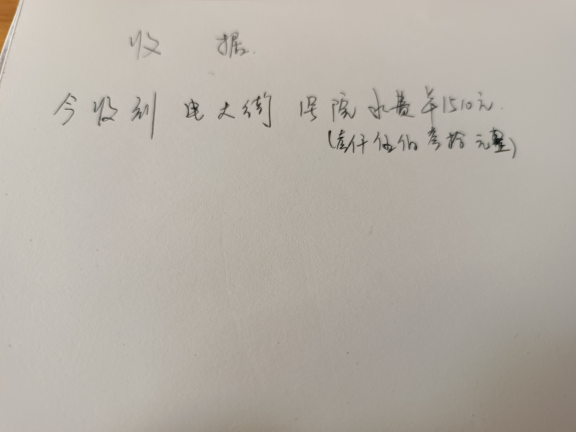 收 据.
今收到 电大街 1号院水费¥1510元.
(壹仟伍佰壹拾元整)